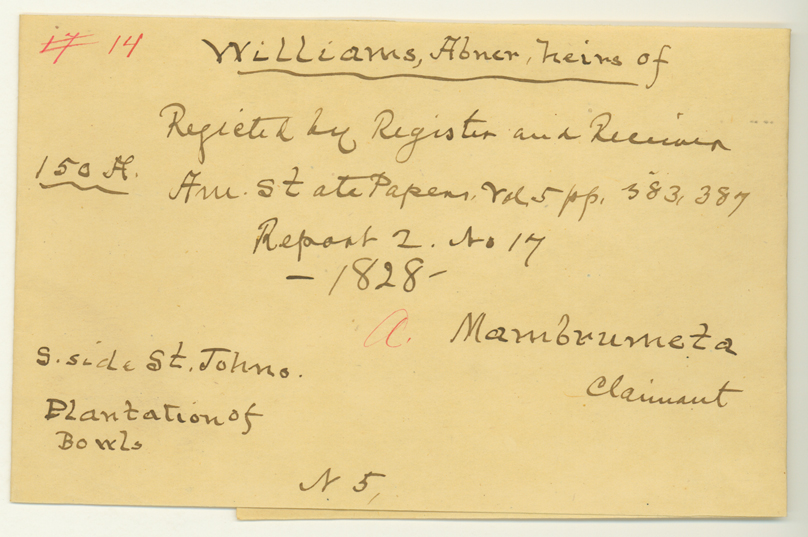 17 14
Williams, Abner, heirs of
Regicted by Register and Receiver
150 A.
Am. State Papers. Vol. 5 pp. 383, 387
Report 2. No 17
- 1828 -
A. Mambrumeta
Claimant
S. side St. Johns.
Plantation of
Bowls
N 5,